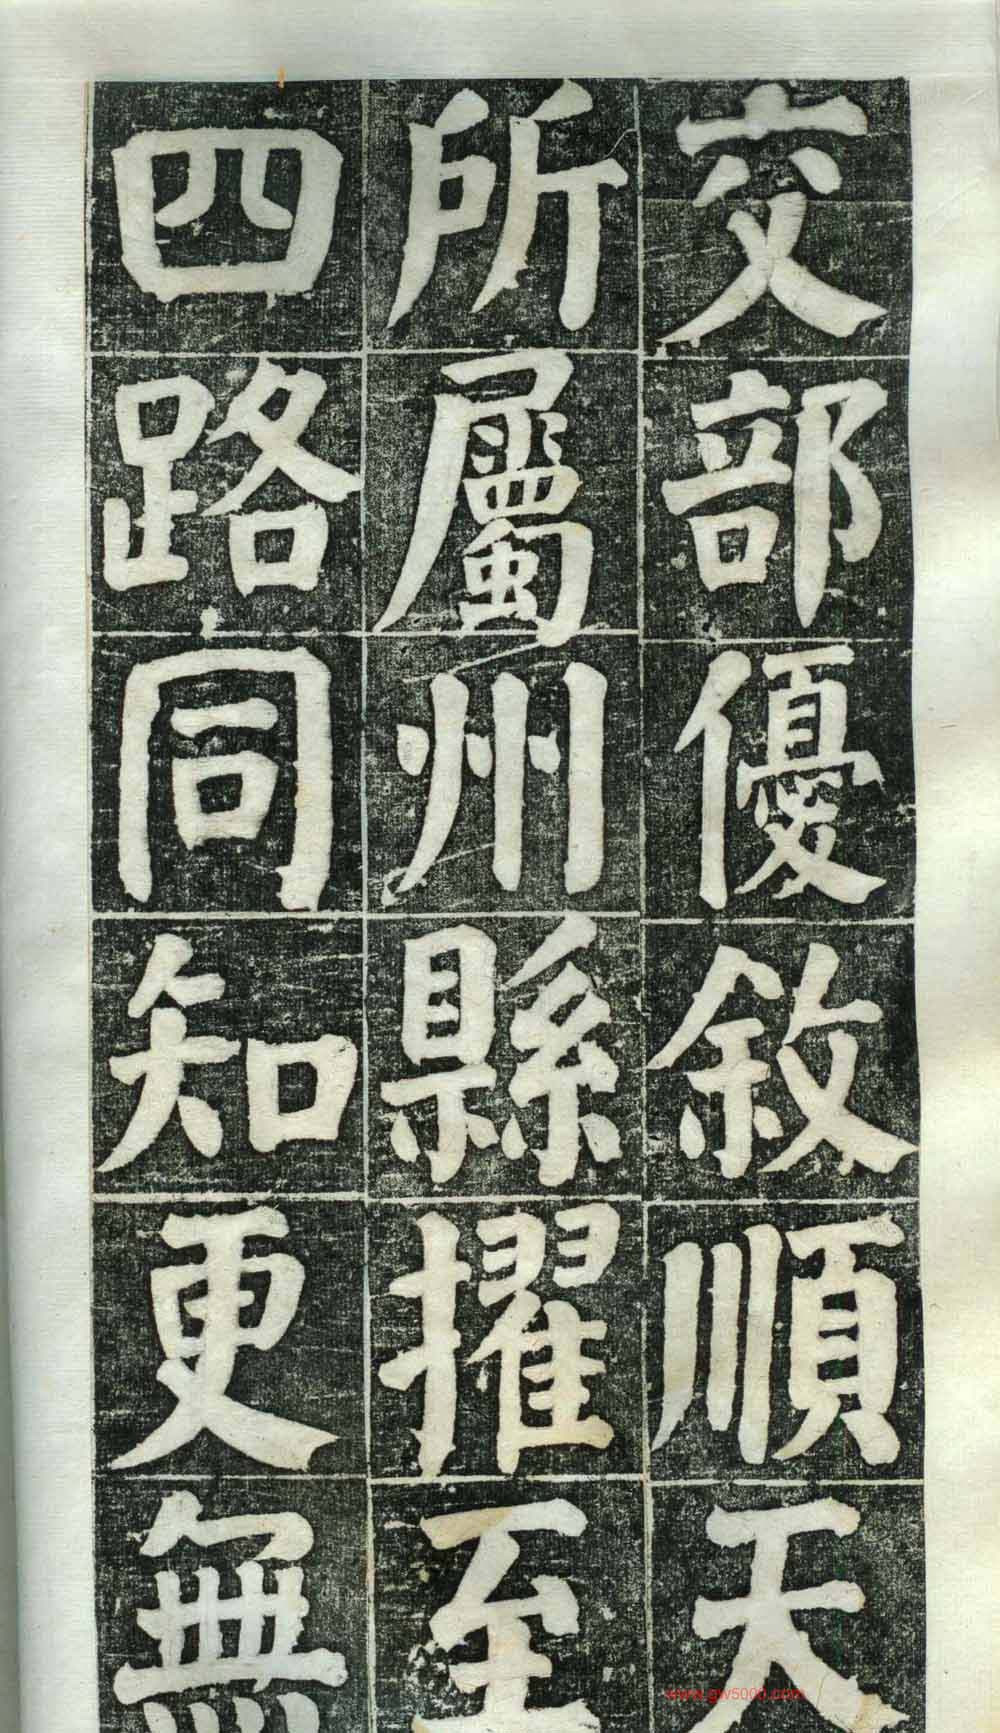 交部優敘順天
所屬州縣擢至
四路同知更無
www.gw5000.com